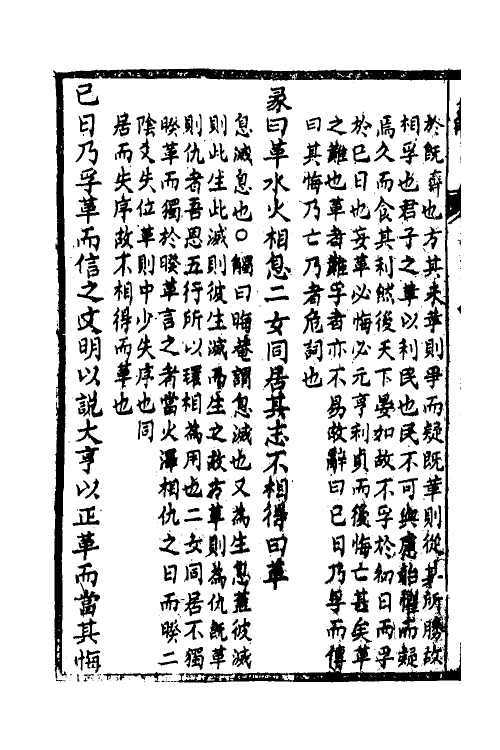 於既孚也方其未革則爭而疑既革則從其所勝故
相孚也君子之革以利民也民不可與慮始懼而疑
焉久而食其利然後天下晏如故不孚於初日而孚
於已日也妄革必悔必元亨利貞而後悔亡甚矣革
之難也革者難孚者亦不易故辭曰已日乃孚而傳
曰其悔乃亡乃者危詞也
彖曰革水火相息二女同居其志不相得曰革
息滅息也○觸曰晦菴謂息滅也又為生息蓋彼滅
則此生此滅則彼生滅而生之故方革則為仇既革
則仇者吾恩五行所以環相為用也二女同居不獨
睽革而獨於睽革言之者當火澤相仇之日而睽二
陰爻失位革則中少失序也同
居而失序故不相得而革也
已日乃孚革而信之文明以說大亨以正革而當其悔